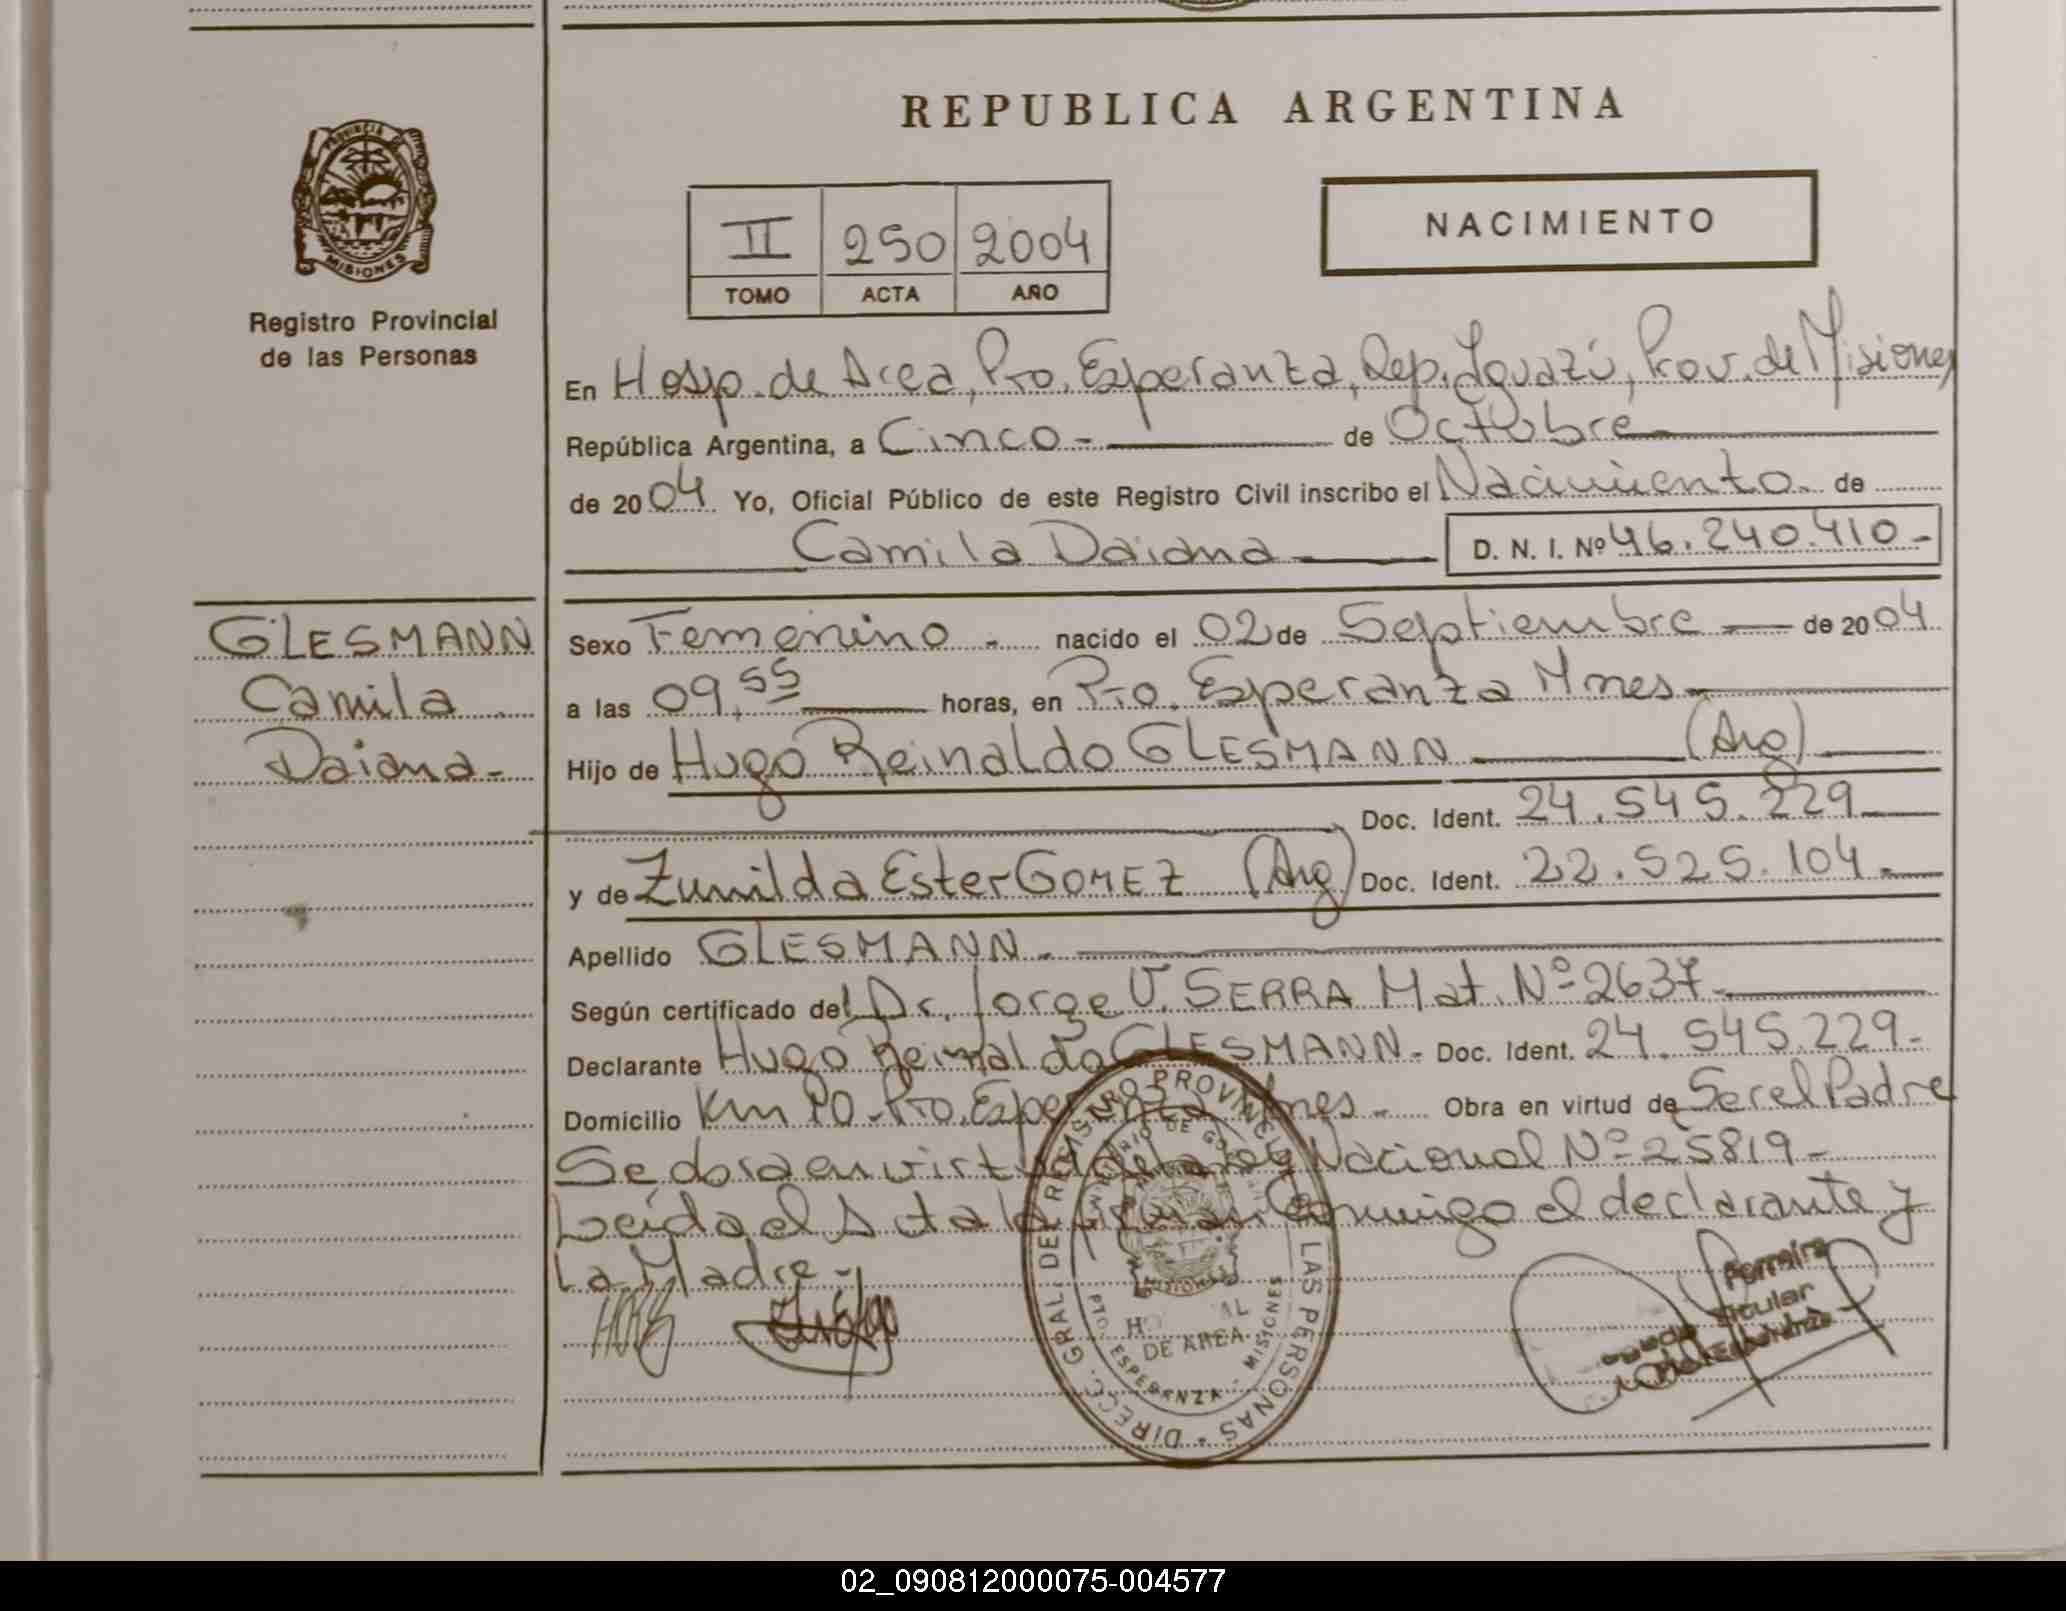 REPUBLICA ARGENTINA
PROVINCIA DE
MISIONES
Registro Provincial
de las Personas
II 250 2004
TOMO ACTA AÑO
NACIMIENTO
En Hosp. de Area, Pto. Esperanza, Dep. Iguazú, Prov. de Misiones
República Argentina, a Cinco.- de Octubre
de 2004 Yo, Oficial Público de este Registro Civil inscribo el Nacimiento. de
Camila Daiana D. N. I. Nº 46.240.410-
GLESMANN
Camila
Daiana-
Sexo Femenino.- nacido el 02 de Septiembre de 2004
a las 09,55 horas, en Pto. Esperanza Mnes-
Hijo de Hugo Reinaldo GLESMANN (Arg)
Doc. Ident. 24.545.229
y de Zunilda Ester GOMEZ (Arg) Doc. Ident. 22.525.104.
Apellido GLESMANN.
Según certificado del Dr. Jorge V. SERRA Mat. Nº 2637.
Declarante Hugo Reinaldo GLESMANN- Doc. Ident. 24.545.229-
Domicilio Km 10-Pto. Esperanza Mnes- Obra en virtud de Ser el Padre
Se obra en virtud de la Ley Nacional Nº 25819-
Leída el Acta la firman Conmigo el declarante y
La Madre-
DIRECC. GRAL. DEL REGISTRO PROVINCIAL DE LAS PERSONAS
MINISTERIO DE GOBIERNO
MISIONES
DE AREA
PTO. ESPERANZA - MISIONES
Ferreira
Titular
02_090812000075-004577